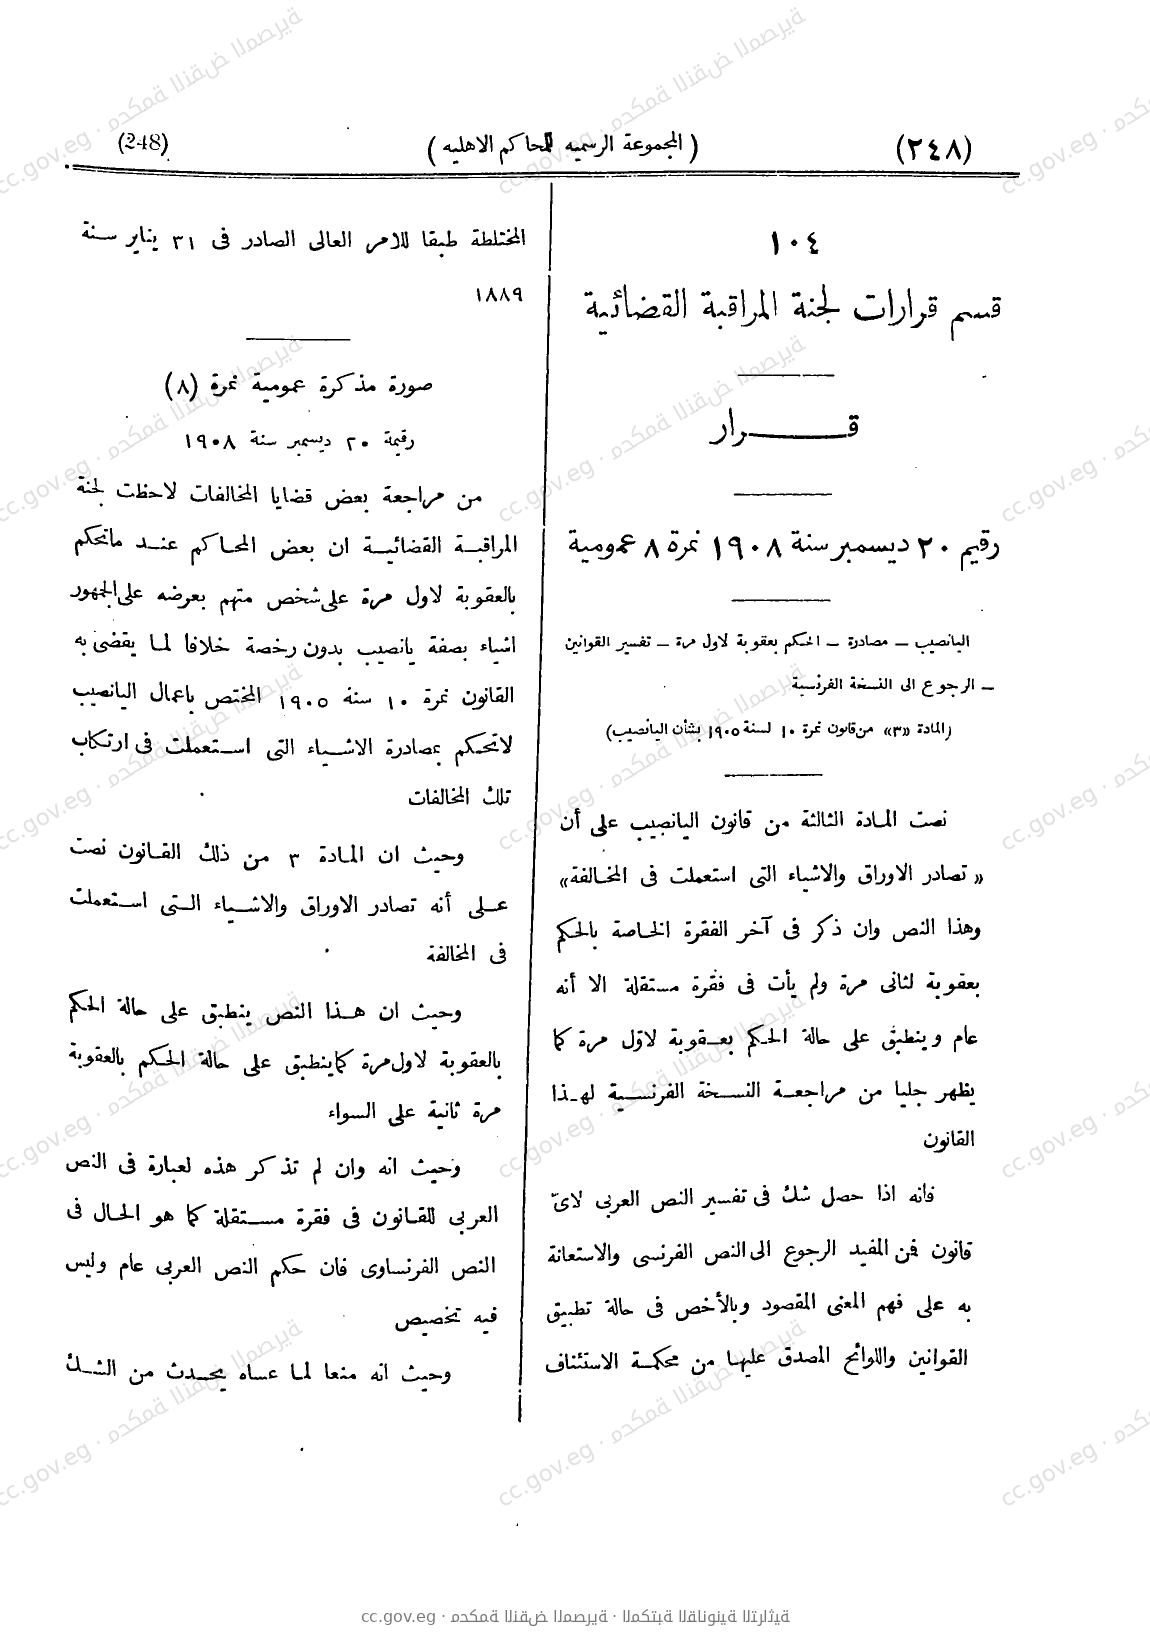 (٢٤٨) ( المجموعة الرسميه للمحاكم الاهليه ) (248)
١٠٤
قسم قرارات لجنة المراقبة القضائية
قـــرار
رقيم ٢٠ ديسمبر سنة ١٩٠٨ نمرة ٨ عمومية
اليانصيب – مصادرة – الحكم بعقوبة لاول مرة – تفسير القوانين
– الرجوع الى النسخة الفرنسية
(المادة «٣» من قانون نمرة ١٠ لسنة ١٩٠٥ بشأن اليانصيب)
نصت المادة الثالثة من قانون اليانصيب على أن
« تصادر الاوراق والاشياء التى استعملت فى المخالفة»
وهذا النص وان ذكر فى آخر الفقرة الخاصة بالحكم
بعقوبة لثانى مرة ولم يأت فى فقرة مستقلة الا أنه
عام وينطبق على حالة الحكم بعقوبة لاوّل مرة كما
يظهر جليا من مراجعة النسخة الفرنسية لهذا
القانون
فانه اذا حصل شك فى تفسير النص العربى لاىّ
قانون فمن المفيد الرجوع الى النص الفرنسى والاستعانة
به على فهم المعنى المقصود وبالأخص فى حالة تطبيق
القوانين واللوائح المصدق عليها من محكمة الاستئناف
المختلطة طبقا للامر العالى الصادر فى ٣١ يناير سنة
١٨٨٩
صورة مذكرة عمومية نمرة (٨)
رقيمة ٢٠ ديسمبر سنة ١٩٠٨
من مراجعة بعض قضايا المخالفات لاحظت لجنة
المراقبة القضائية ان بعض المحاكم عند ماتحكم
بالعقوبة لاول مرة على شخص متهم بعرضه على الجمهور
اشياء بصفة يانصيب بدون رخصة خلافا لما يقضى به
القانون نمرة ١٠ سنة ١٩٠٥ المختص باعمال اليانصيب
لاتحكم بمصادرة الاشياء التى استعملت فى ارتكاب
تلك المخالفات
وحيث ان المادة ٣ من ذلك القانون نصت
على أنه تصادر الاوراق والاشياء التى استعملت
فى المخالفة
وحيث ان هذا النص ينطبق على حالة الحكم
بالعقوبة لاول مرة كما ينطبق على حالة الحكم بالعقوبة
مرة ثانية على السواء
وحيث انه وان لم تذكر هذه لعبارة فى النص
العربى للقانون فى فقرة مستقلة كما هو الحال فى
النص الفرنساوى فان حكم النص العربى عام وليس
فيه تخصيص
وحيث انه منعا لما عساه يحدث من الشك
cc.gov.eg · محكمة النقض المصرية · المكتبة القانونية التراثية